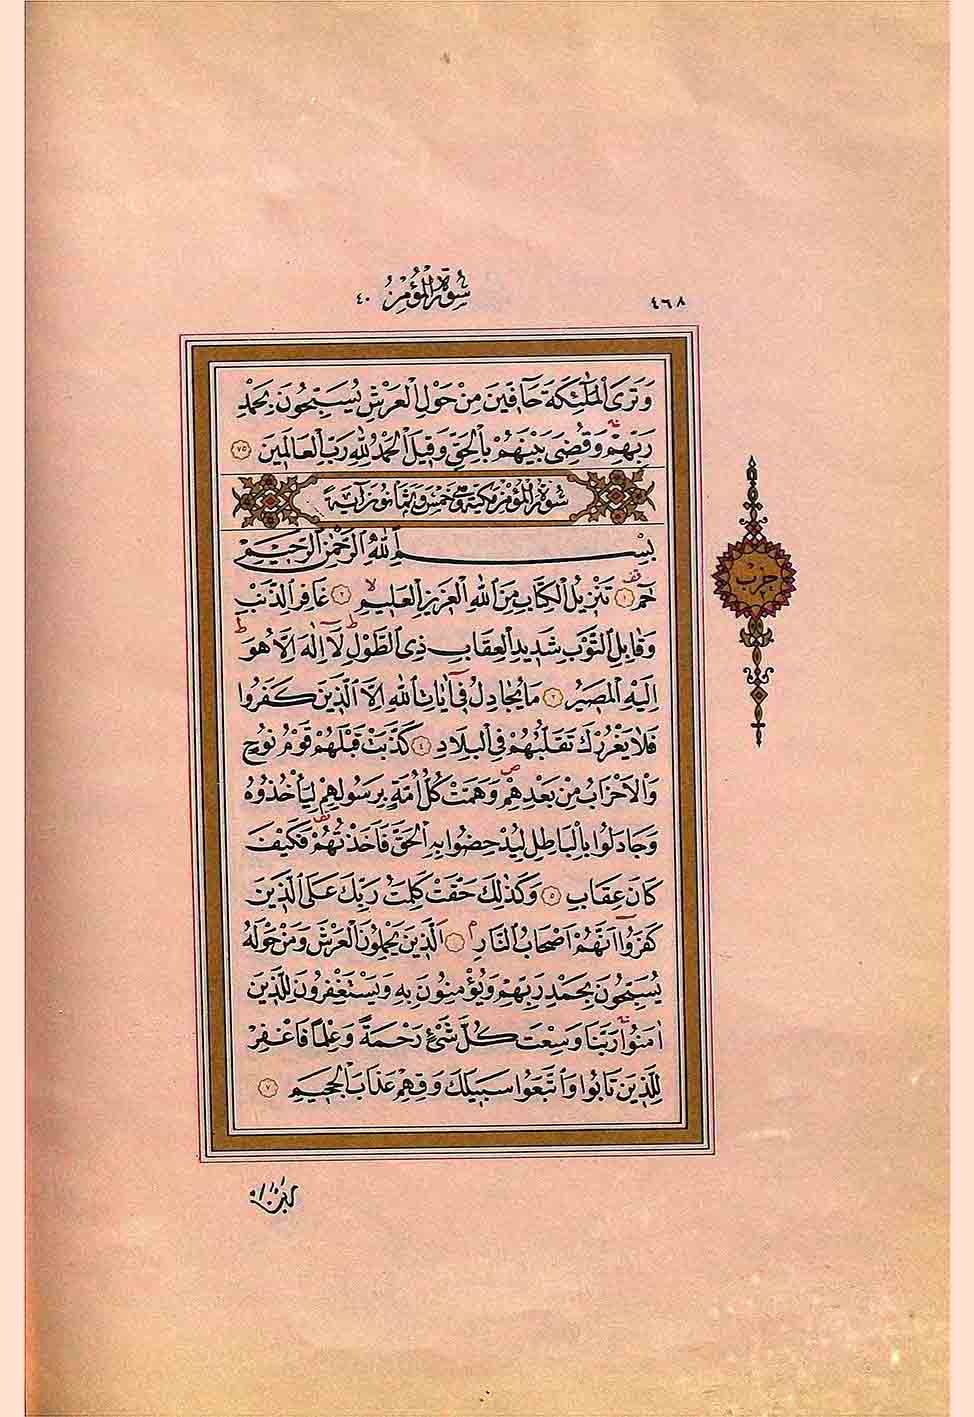 ٤٦٨
سُورَةُ الْمُؤْمِنِ ٤٠
وَتَرَى الْمَلٰٓئِكَةَ حَٓافّ۪ينَ مِنْ حَوْلِ الْعَرْشِ يُسَبِّحُونَ بِحَمْدِ
رَبِّهِمْۚ وَقُضِيَ بَيْنَهُمْ بِالْحَقِّ وَق۪يلَ الْحَمْدُ لِلّٰهِ رَبِّ الْعَالَم۪ينَ ٧٥
سُورَةُ الْمُؤْمِنِ مَكِّيَّةٌ وَهِيَ خَمْسٌ وَثَمَانُونَ اٰيَةً
بِسْمِ اللّٰهِ الرَّحْمٰنِ الرَّح۪يمِ
حٰمٓ قف ١ تَنْز۪يلُ الْكِتَابِ مِنَ اللّٰهِ الْعَز۪يزِ الْعَل۪يمِۙ ٢ غَافِرِ الذَّنْبِ
وَقَابِلِ التَّوْبِ شَد۪يدِ الْعِقَابِ ذِي الطَّوْلِۜ لَٓا اِلٰهَ اِلَّا هُوَۜ
اِلَيْهِ الْمَص۪يرُ ٣ مَا يُجَادِلُ ف۪ٓي اٰيَاتِ اللّٰهِ اِلَّا الَّذ۪ينَ كَفَرُوا
فَلَا يَغْرُرْكَ تَقَلُّبُهُمْ فِي الْبِلَادِ ٤ كَذَّبَتْ قَبْلَهُمْ قَوْمُ نُوحٍ
وَالْاَحْزَابُ مِنْ بَعْدِهِمْۖ وَهَمَّتْ كُلُّ اُمَّةٍ بِرَسُولِهِمْ لِيَأْخُذُوهُ
وَجَادَلُوا بِالْبَاطِلِ لِيُدْحِضُوا بِهِ الْحَقَّ فَاَخَذْتُهُمْ فَكَيْفَ
كَانَ عِقَابِ ٥ وَكَذٰلِكَ حَقَّتْ كَلِمَتُ رَبِّكَ عَلَى الَّذ۪ينَ
كَفَرُٓوا اَنَّهُمْ اَصْحَابُ النَّارِۢ اَلَّذ۪ينَ يَحْمِلُونَ الْعَرْشَ وَمَنْ حَوْلَهُ
يُسَبِّحُونَ بِحَمْدِ رَبِّهِمْ وَيُؤْمِنُونَ بِه۪ وَيَسْتَغْفِرُونَ لِلَّذ۪ينَ
اٰمَنُواۚ رَبَّنَا وَسِعْتَ كُلَّ شَيْءٍ رَحْمَةً وَعِلْمًا فَاغْفِرْ
لِلَّذ۪ينَ تَابُوا وَاتَّبَعُوا سَب۪يلَكَ وَقِهِمْ عَذَابَ الْجَح۪يمِ ٧
حزب